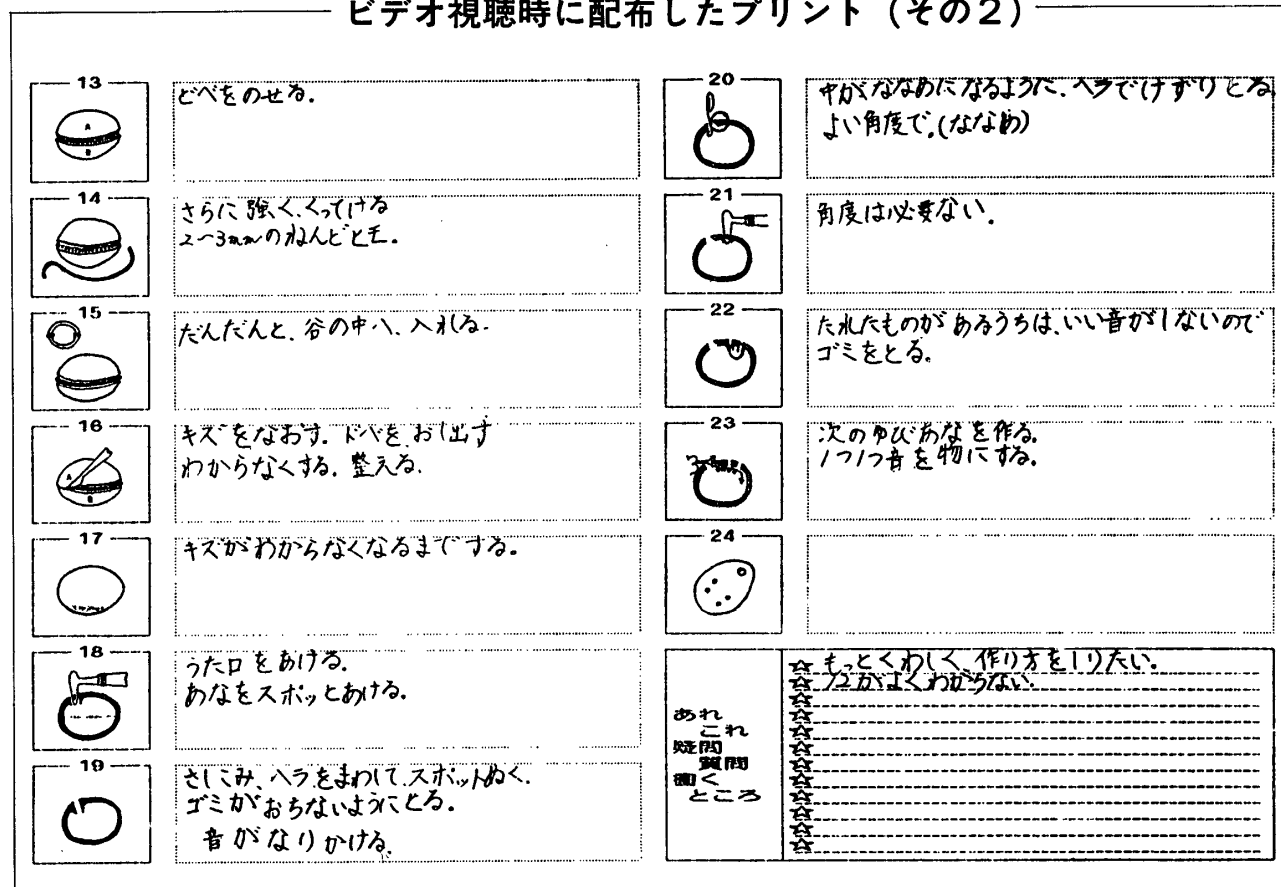 ビデオ視聴時に配布したプリント（その２）
13
どべをのせる.
14
さらに強く、くっつける
2〜3mmのねんどヒモ.
15
だんだんと、谷の中へ、入れる.
16
キズをなおす. ドベをおし出す
わからなくする. 整える.
17
キズがわからなくなるまでする.
18
うた口をあける.
あなをスポッとあける.
19
さしこみ、ヘラをまわして、スポットぬく.
ゴミがおちないようにとる.
音がなりかける.
20
中がななめになるように、ヘラでけずりとる
よい角度で.(ななめ)
21
角度は必要ない.
22
たれたものがあるうちは、いい音がしないので
ゴミをとる.
23
次のゆびあなを作る.
1つ1つ音を物にする.
24
あれ
これ
疑問
質問
聞く
ところ
☆ もっとくわしく、作り方をしりたい.
☆ 12がよくわからない.
☆
☆
☆
☆
☆
☆
☆
☆
☆
☆